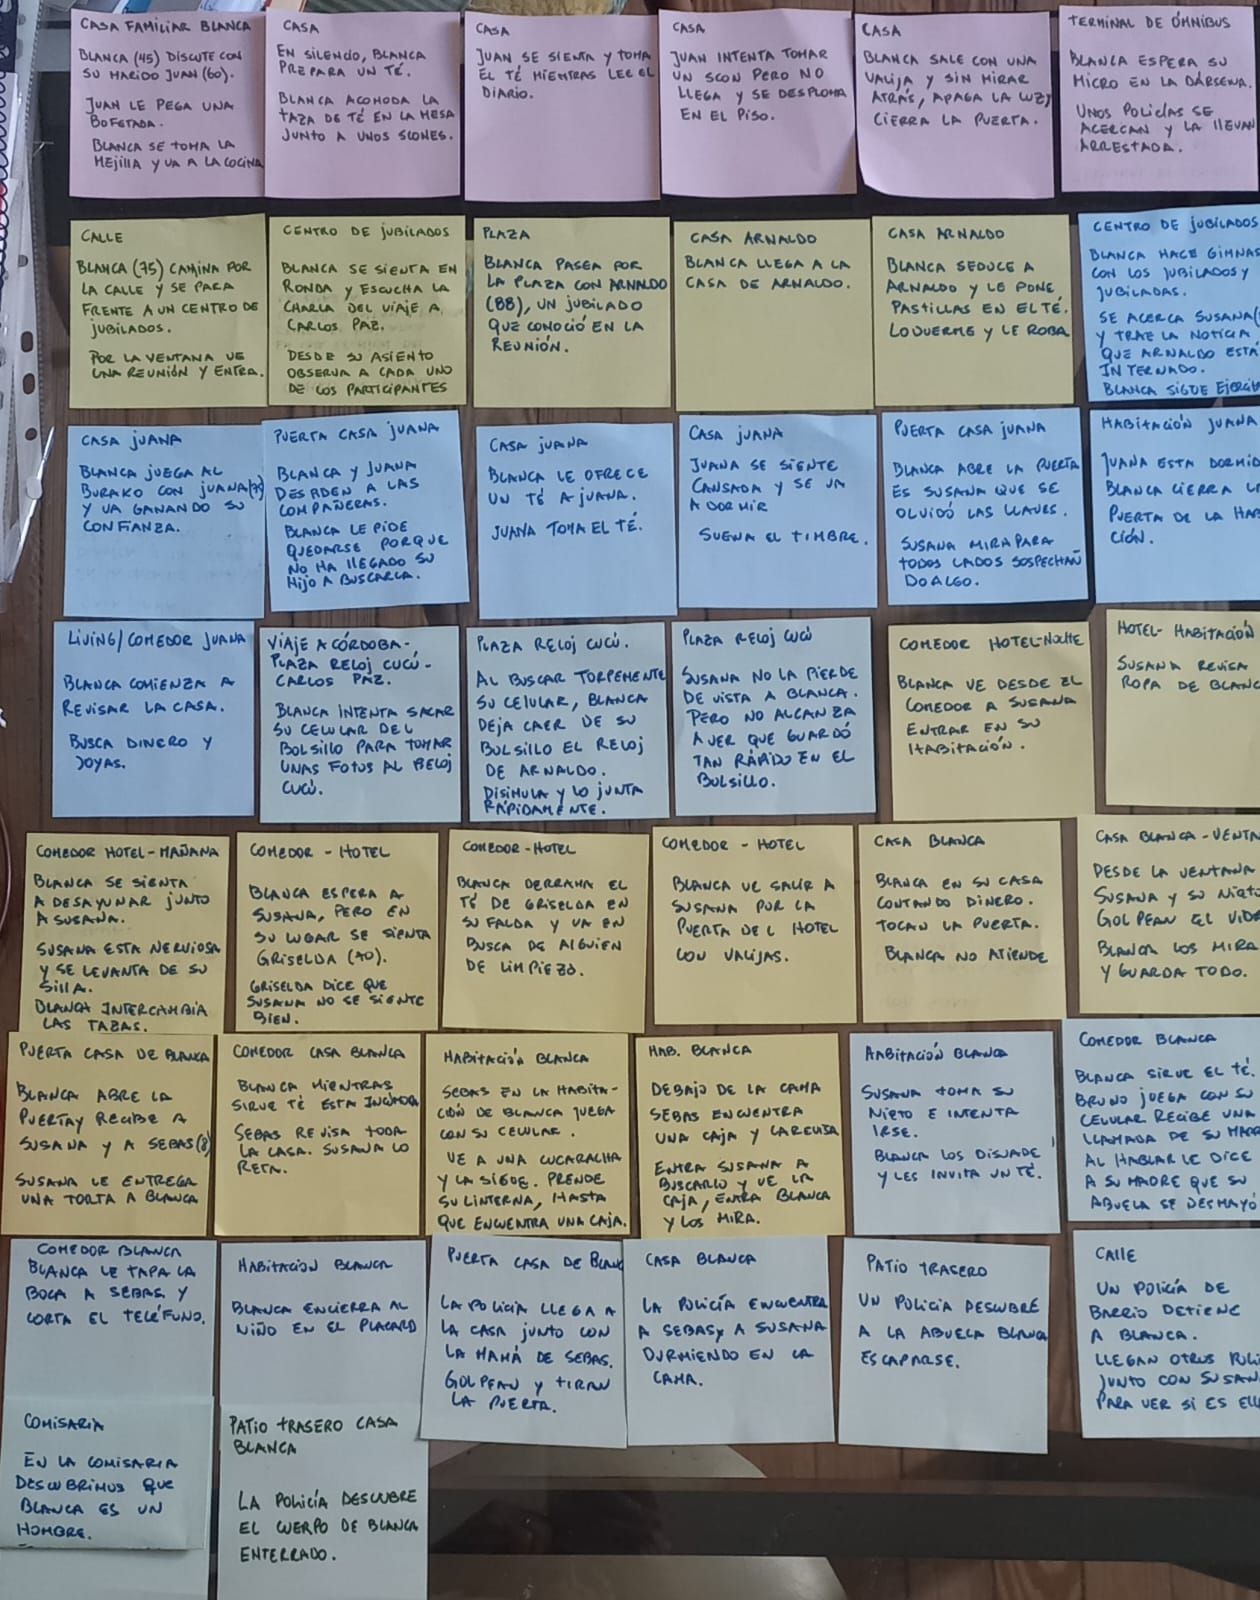 CASA FAMILIAR BLANCA
BLANCA (45) DISCUTE CON
SU MARIDO JUAN (60).
JUAN LE PEGA UNA
BOFETADA.
BLANCA SE TOMA LA
MEJILLA Y VA A LA COCINA
CASA
EN SILENCIO, BLANCA
PREPARA UN TÉ.
BLANCA ACOMODA LA
TAZA DE TÉ EN LA MESA
JUNTO A UNOS SCONES.
CASA
JUAN SE SIENTA Y TOMA
EL TÉ MIENTRAS LEE EL
DIARIO.
CASA
JUAN INTENTA TOMAR
UN SCON PERO NO
LLEGA Y SE DESPLOMA
EN EL PISO.
CASA
BLANCA SALE CON UNA
VALIJA Y SIN MIRAR
ATRÁS, APAGA LA LUZ Y
CIERRA LA PUERTA.
TERMINAL DE ÓMNIBUS
BLANCA ESPERA SU
MICRO EN LA DÁRSENA.
UNOS POLICÍAS SE
ACERCAN Y LA LLEVAN
ARRESTADA.
CALLE
BLANCA (75) CAMINA POR
LA CALLE Y SE PARA
FRENTE A UN CENTRO DE
JUBILADOS.
POR LA VENTANA VE
UNA REUNIÓN Y ENTRA.
CENTRO DE JUBILADOS
BLANCA SE SIENTA EN
RONDA Y ESCUCHA LA
CHARLA DEL VIAJE A
CARLOS PAZ.
DESDE SU ASIENTO
OBSERVA A CADA UNO
DE LOS PARTICIPANTES
PLAZA
BLANCA PASEA POR
LA PLAZA CON ARNALDO
(88), UN JUBILADO
QUE CONOCIÓ EN LA
REUNIÓN.
CASA ARNALDO
BLANCA LLEGA A LA
CASA DE ARNALDO.
CASA ARNALDO
BLANCA SEDUCE A
ARNALDO Y LE PONE
PASTILLAS EN EL TÉ.
LO DUERME Y LE ROBA
CENTRO DE JUBILADOS
BLANCA HACE GIMNAS
CON LOS JUBILADOS Y
JUBILADAS.
SE ACERCA SUSANA
Y TRAE LA NOTICIA
QUE ARNALDO ESTÁ
INTERNADO.
BLANCA SIGUE EJERCI
CASA JUANA
BLANCA JUEGA AL
BURAKO CON JUANA
Y VA GANANDO SU
CONFIANZA.
PUERTA CASA JUANA
BLANCA Y JUANA
DESPIDEN A LAS
COMPAÑERAS.
BLANCA LE PIDE
QUEDARSE PORQUE
NO HA LLEGADO SU
HIJO A BUSCARLA.
CASA JUANA
BLANCA LE OFRECE
UN TÉ A JUANA.
JUANA TOMA EL TÉ.
CASA JUANA
JUANA SE SIENTE
CANSADA Y SE VA
A DORMIR
SUENA EL TIMBRE.
PUERTA CASA JUANA
BLANCA ABRE LA PUERTA
ES SUSANA QUE SE
OLVIDÓ LAS LLAVES.
SUSANA MIRA PARA
TODOS LADOS SOSPECHAN
DO ALGO.
HABITACIÓN JUANA
JUANA ESTA DORMID
BLANCA CIERRA LA
PUERTA DE LA HAB
CIÓN.
LIVING/COMEDOR JUANA
BLANCA COMIENZA A
REVISAR LA CASA.
BUSCA DINERO Y
JOYAS.
VIAJE A CÓRDOBA-,
PLAZA RELOJ CUCÚ-
CARLOS PAZ.
BLANCA INTENTA SACAR
SU CELULAR DEL
BOLSILLO PARA TOMAR
UNAS FOTOS AL RELOJ
CUCÚ.
PLAZA RELOJ CUCÚ.
AL BUSCAR TORPEMENTE
SU CELULAR, BLANCA
DEJA CAER DE SU
BOLSILLO EL RELOJ
DE ARNALDO.
DISIMULA Y LO JUNTA
RÁPIDAMENTE.
PLAZA RELOJ CUCÚ
SUSANA NO LA PIERDE
DE VISTA A BLANCA.
PERO NO ALCANZA
A VER QUE GUARDÓ
TAN RÁPIDO EN EL
BOLSILLO.
COMEDOR HOTEL-NOCHE
BLANCA VE DESDE EL
COMEDOR A SUSANA
ENTRAR EN SU
HABITACIÓN.
HOTEL-HABITACIÓN
SUSANA REVISA
ROPA DE BLANC
COMEDOR HOTEL-MAÑANA
BLANCA SE SIENTA
A DESAYUNAR JUNTO
A SUSANA.
SUSANA ESTA NERVIOSA
Y SE LEVANTA DE SU
SILLA.
BLANCA INTERCAMBIA
LAS TAZAS.
COMEDOR - HOTEL
BLANCA ESPERA A
SUSANA, PERO EN
SU LUGAR SE SIENTA
GRISELDA (70).
GRISELDA DICE QUE
SUSANA NO SE SIENTE
BIEN.
COMEDOR-HOTEL
BLANCA DERRAMA EL
TÉ DE GRISELDA EN
SU FALDA Y VA EN
BUSCA DE ALGUIEN
DE LIMPIEZA.
COMEDOR - HOTEL
BLANCA VE SALIR A
SUSANA POR LA
PUERTA DEL HOTEL
CON VALIJAS.
CASA BLANCA
BLANCA EN SU CASA
CONTANDO DINERO.
TOCAN LA PUERTA.
BLANCA NO ATIENDE
CASA BLANCA-VENTA
DESDE LA VENTANA
SUSANA Y SU NIETO
GOLPEAN EL VIDR
BLANCA LOS MIRA
Y GUARDA TODO.
PUERTA CASA DE BLANCA
BLANCA ABRE LA
PUERTA Y RECIBE A
SUSANA Y A SEBAS(8)
SUSANA LE ENTREGA
UNA TORTA A BLANCA
COMEDOR CASA BLANCA
BLANCA MIENTRAS
SIRVE TÉ ESTA INCÓMODA
SEBAS REVISA TODA
LA CASA. SUSANA LO
RETA.
HABITACIÓN BLANCA
SEBAS EN LA HABITA-
CIÓN DE BLANCA JUEGA
CON SU CELULAR.
VE A UNA CUCARACHA
Y LA SIGUE. PRENDE
SU LINTERNA, HASTA
QUE ENCUENTRA UNA CAJA.
HAB. BLANCA
DEBAJO DE LA CAMA
SEBAS ENCUENTRA
UNA CAJA Y LA REVISA
ENTRA SUSANA A
BUSCARLO Y VE LA
CAJA, ENTRA BLANCA
Y LOS MIRA.
HABITACIÓN BLANCA
SUSANA TOMA SU
NIETO E INTENTA
IRSE.
BLANCA LOS DISUADE
Y LES INVITA UN TÉ.
COMEDOR BLANCA
BLANCA SIRVE EL TÉ.
BRUNO JUEGA CON SU
CELULAR RECIBE UNA
LLAMADA DE SU MADR
AL HABLAR LE DICE
A SU MADRE QUE SU
ABUELA SE DESMAYÓ
COMEDOR BLANCA
BLANCA LE TAPA LA
BOCA A SEBAS Y
CORTA EL TELÉFONO.
HABITACION BLANCA
BLANCA ENCIERRA AL
NIÑO EN EL PLACARD
PUERTA CASA DE BLANC
LA POLICIA LLEGA A
LA CASA JUNTO CON
LA MAMÁ DE SEBAS.
GOLPEAN Y TIRAN
LA PUERTA.
CASA BLANCA
LA POLICÍA ENCUENTRA
A SEBAS Y A SUSANA
DURMIENDO EN LA
CAMA.
PATIO TRASERO
UN POLICIA DESCUBRE
A LA ABUELA BLANCA
ESCAPARSE.
CALLE
UN POLICÍA DE
BARRIO DETIENE
A BLANCA.
LLEGAN OTROS POLI
JUNTO CON SUSAN
PARA VER SI ES ELL
COMISARIA
EN LA COMISARIA
DESCUBRIMOS QUE
BLANCA ES UN
HOMBRE.
PATIO TRASERO CASA
BLANCA
LA POLICÍA DESCUBRE
EL CUERPO DE BLANCA
ENTERRADO.